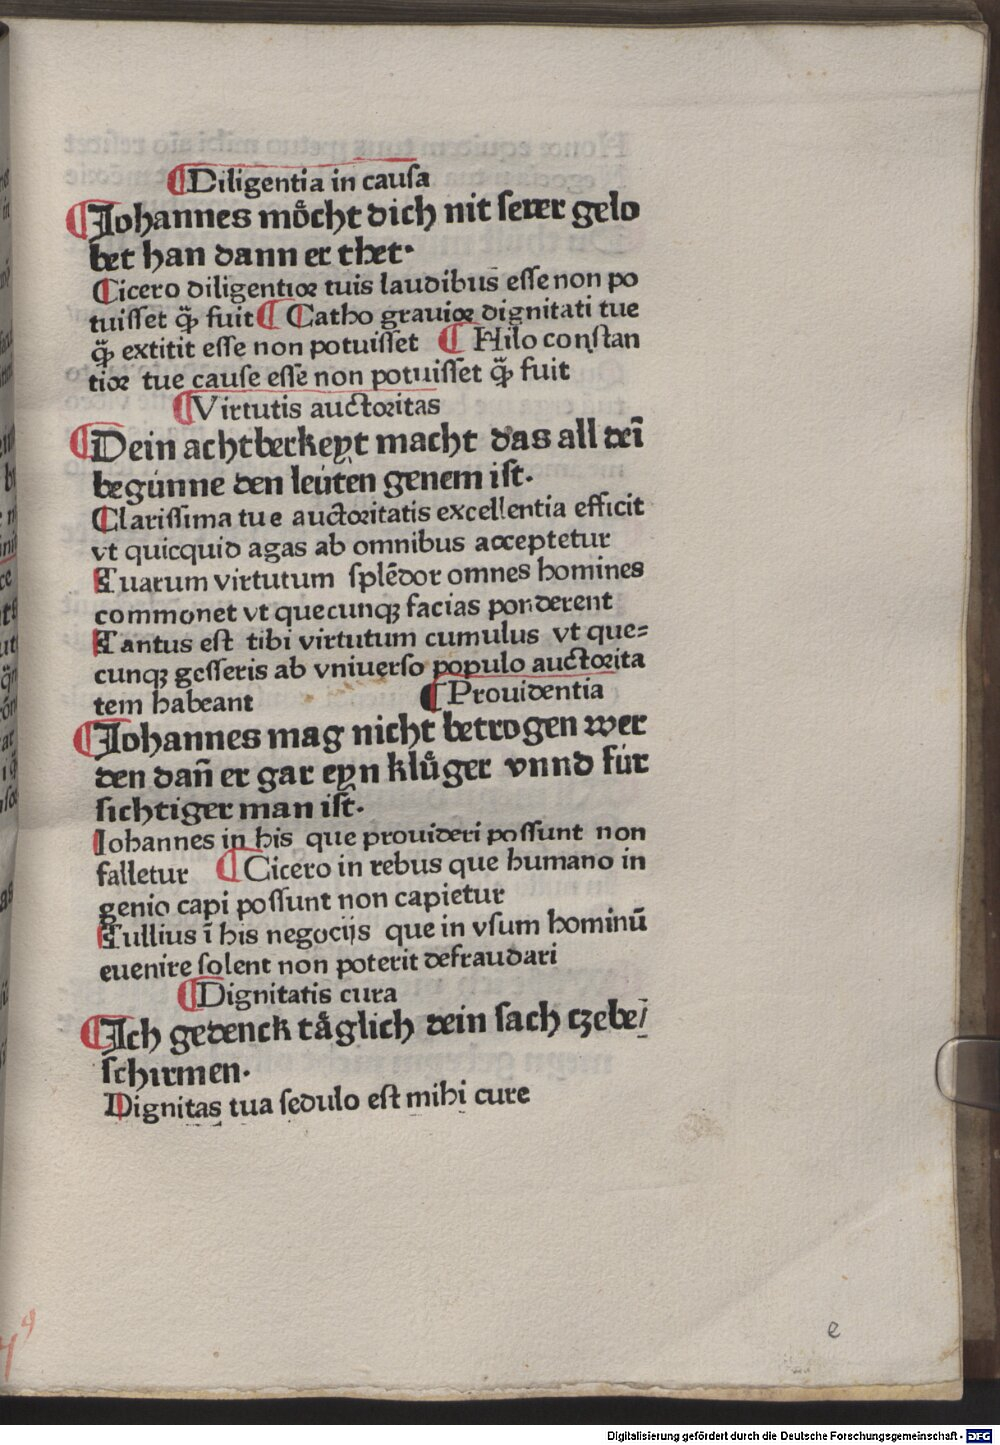 Diligentia in causa
Johannes mo̊cht dich nit serer gelo
bet han dann er thet·
Cicero diligentior tuis laudibus esse non po
tuisset q̃ꝫ fuit Catho grauior dignitati tue
q̃ꝫ extitit esse non potuisset Hilo constan
tior tue cause esse non potuisset q̃ꝫ fuit
Virtutis auctoritas
Dein achtberkeyt macht das all dei̅
begúnne den leúten genem ist·
Clarissima tue auctoritatis excellentia efficit
vt quicquid agas ab omnibus acceptetur
Tuarum virtutum sple̅dor omnes homines
commonet vt quecunqꝫ facias ponderent
Tantus est tibi virtutum cumulus vt que=
cunqꝫ gesseris ab vniuerso populo auctorita
tem habeant Prouidentia
Johannes mag nicht betrogen wer
den dan̅ er gar eyn klu̇ger vnnd fúr
sichtiger man ist·
Johannes in his que prouideri possunt non
falletur Cicero in rebus que humano in
genio capi possunt non capietur
Tullius i̅ his negocijs que in vsum hominu̅
euenire solent non poterit defraudari
Dignitatis cura
Ich gedenck ta̋glich dein sach czebe/
schirmen·
Dignitas tua sedulo est mihi cure
e
Digitalisierung gefördert durch die Deutsche Forschungsgemeinschaft · DFG